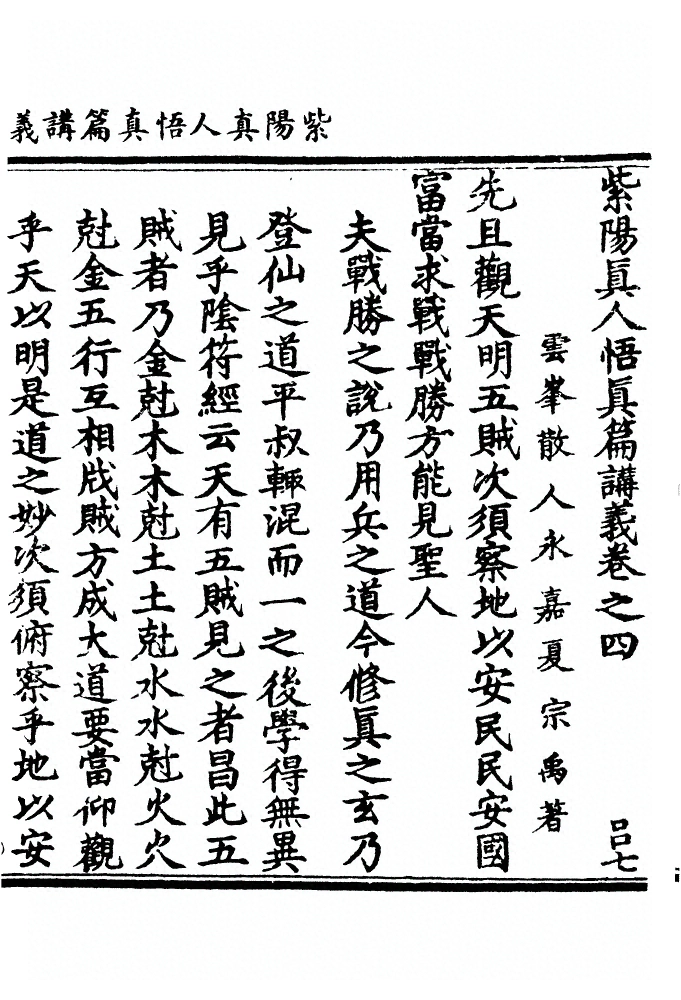 紫陽真人悟真篇講義
紫陽眞人悟眞篇講義卷之四 㠯七
雲峯散人永嘉夏宗禹著
先且觀天明五賊次須察地以安民民安國
富當求戰戰勝方能見聖人
夫戰勝之說乃用兵之道今修眞之玄乃
登仙之道平叔輙混而一之後學得無異
見乎陰符經云天有五賊見之者昌此五
賊者乃金尅木木尅土土尅水水尅火火
尅金五行互相戕賊方成大道要當仰觀
乎天以明是道之妙次須俯察乎地以安